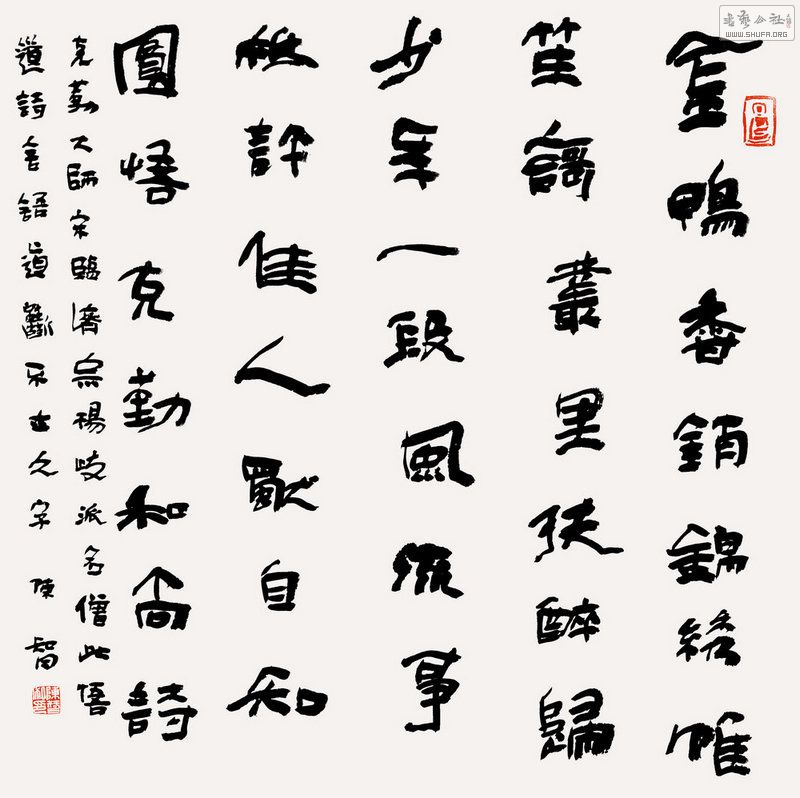 金鴨香銷錦綉帷
笙謌叢里扶醉歸
少年一段風流事
秖許佳人獨自知
圓悟克勤和尚詩
克勤大師宋臨濟宗楊岐派名僧此悟
道詩言語道斷不立文字 陳智
書藝公社
WWW.SHUFA.ORG